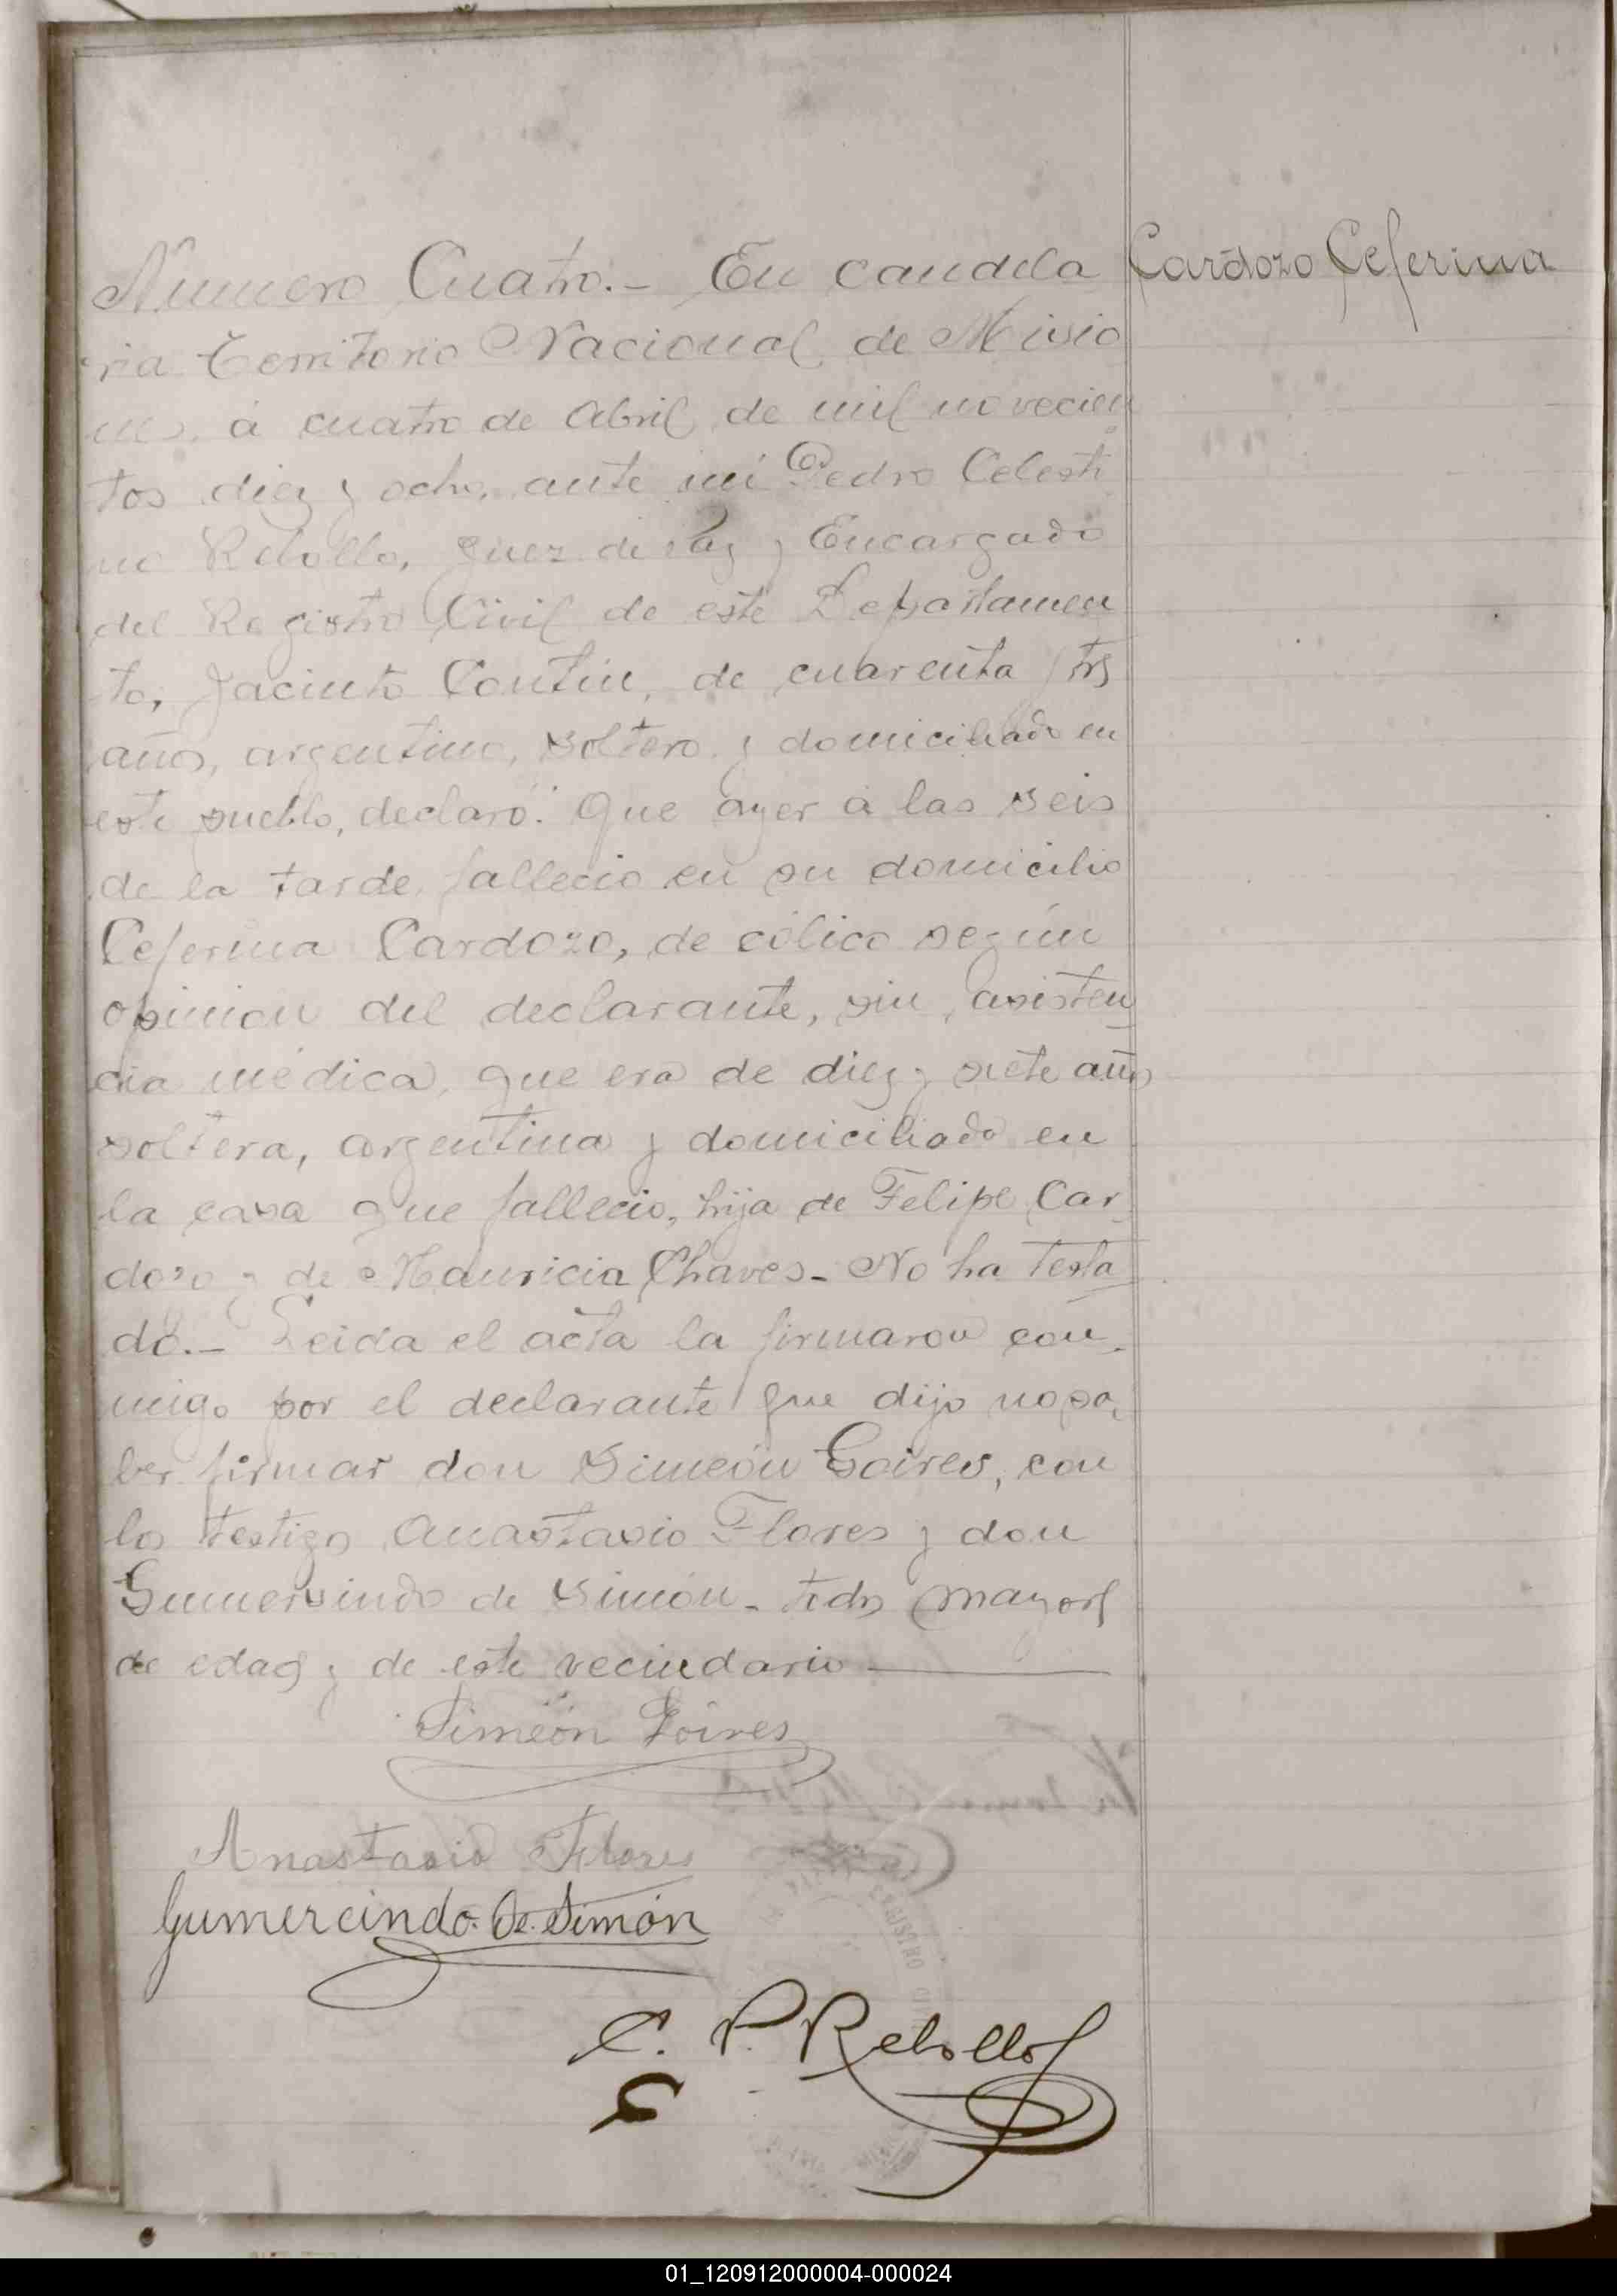 Numero Cuatro.- En candela
Cardozo Ceferina
ria Territorio Nacional de Misio
nes, á cuatro de Abril de mil novecien
tos diez y ocho, ante mi Pedro Celesti
no Rebollo, Juez de Paz y Encargado
del Registro Civil de este Departamen
to, Jacinto Contin, de cuarenta y tres
años, argentino, soltero y domiciliado en
este pueblo, declaró: Que ayer á las seis
de la tarde, fallecio en su domicilio
Ceferina Cardozo, de cólico según
opinion del declarante, sin asisten
cia médica, que era de diez y siete años
soltera, argentina y domiciliada en
la casa que fallecio, hija de Felipe Car
dozo y de Mauricia Chaves- No ha testa
do.- Leida el acta la firmaron con
migo por el declarante que dijo no sa
ber firmar don Simeón Goires, con
los testigos Anastasio Flores y don
Gumersindo de Simón- todos mayores
de edad y de este vecindario
Simeón Goires
Anastasio Flores
Gumercindo. De. Simón
C. P. Rebollo
01_120912000004-000024